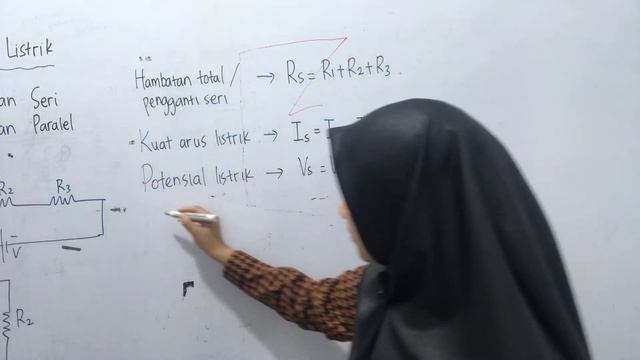 Listrik
Seri
Paralel
Hambatan total/
pengganti seri → Rs = R1+R2+R3.
Kuat arus listrik → Is =
Potensial listrik → Vs =
R2 R3
V
R2